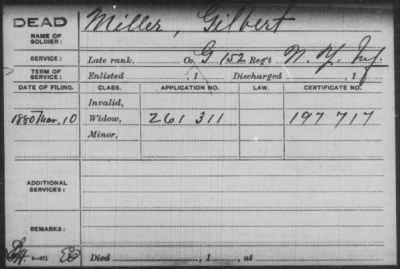 DEAD
NAME OF SOLDIER: Miller, Gilbert
SERVICE: Late rank, Co. G. 152 Reg't N. Y. Inf.
TERM OF SERVICE: Enlisted , 1 Discharged , 1
DATE OF FILING. CLASS. APPLICATION NO. LAW. CERTIFICATE NO.
Invalid,
1880 Mar. 10 Widow, 261 311 197 717
Minor,
ADDITIONAL SERVICES:
REMARKS:
Died , 1 , at